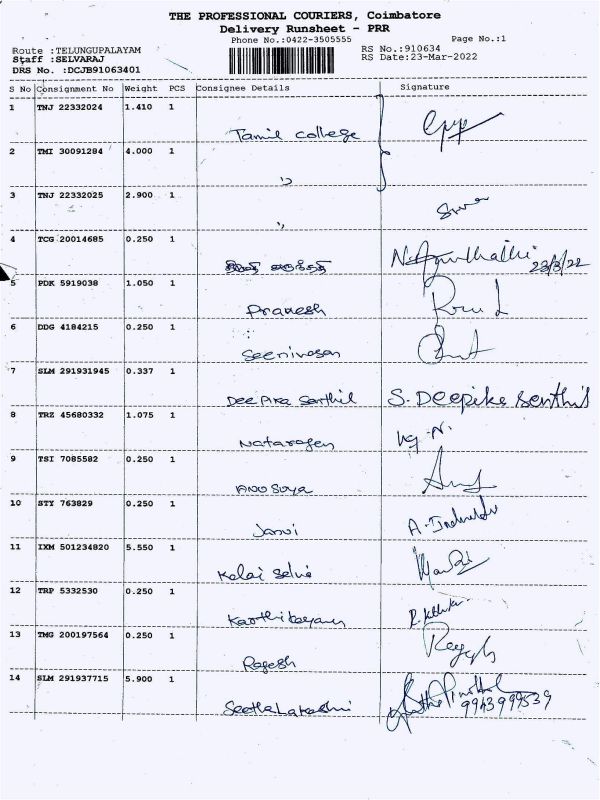 THE PROFESSIONAL COURIERS, Coimbatore
Delivery Runsheet - PRR
Phone No.:0422-3505555 Page No.:1
Route :TELUNGUPALAYAM RS No.:910634
Staff :SELVARAJ RS Date:23-Mar-2022
DRS No. :DCJB91063401
S No Consignment No Weight PCS Consignee Details Signature
1 TNJ 22332024 1.410 1
Tamil college
2 TMI 30091284 4.000 1
"
3 TNJ 22332025 2.900 1
"
4 TCG 20014685 0.250 1
23/3/22
5 PDK 5919038 1.050 1
Pranesh
6 DDG 4184215 0.250 1
Seenivasan
7 SLM 291931945 0.337 1
Deepika Senthil S. Deepika Senthil
8 TRZ 45680332 1.075 1
Natarajen
9 TSI 7085582 0.250 1
Anusuya
10 STY 763829 0.250 1
Janvi
11 IXM 501234820 5.550 1
Kalai Selvi
12 TRP 5332530 0.250 1
Karthikeyan
13 TMG 200197564 0.250 1
Ragesh
14 SLM 291937715 5.900 1
SeethaLakshmi 9943999539